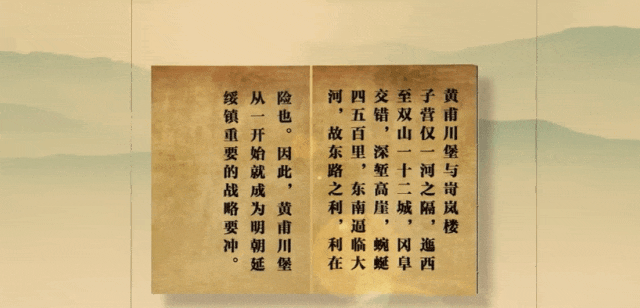 黄甫川堡与岢岚楼
子营仅一河之隔，迤西
至双山一十二城，冈阜
交错，深堑高崖，蜿蜒
四五百里，东南逼临大
河，故东路之利，利在
险也。因此，黄甫川堡
从一开始就成为明朝延
绥镇重要的战略要冲。